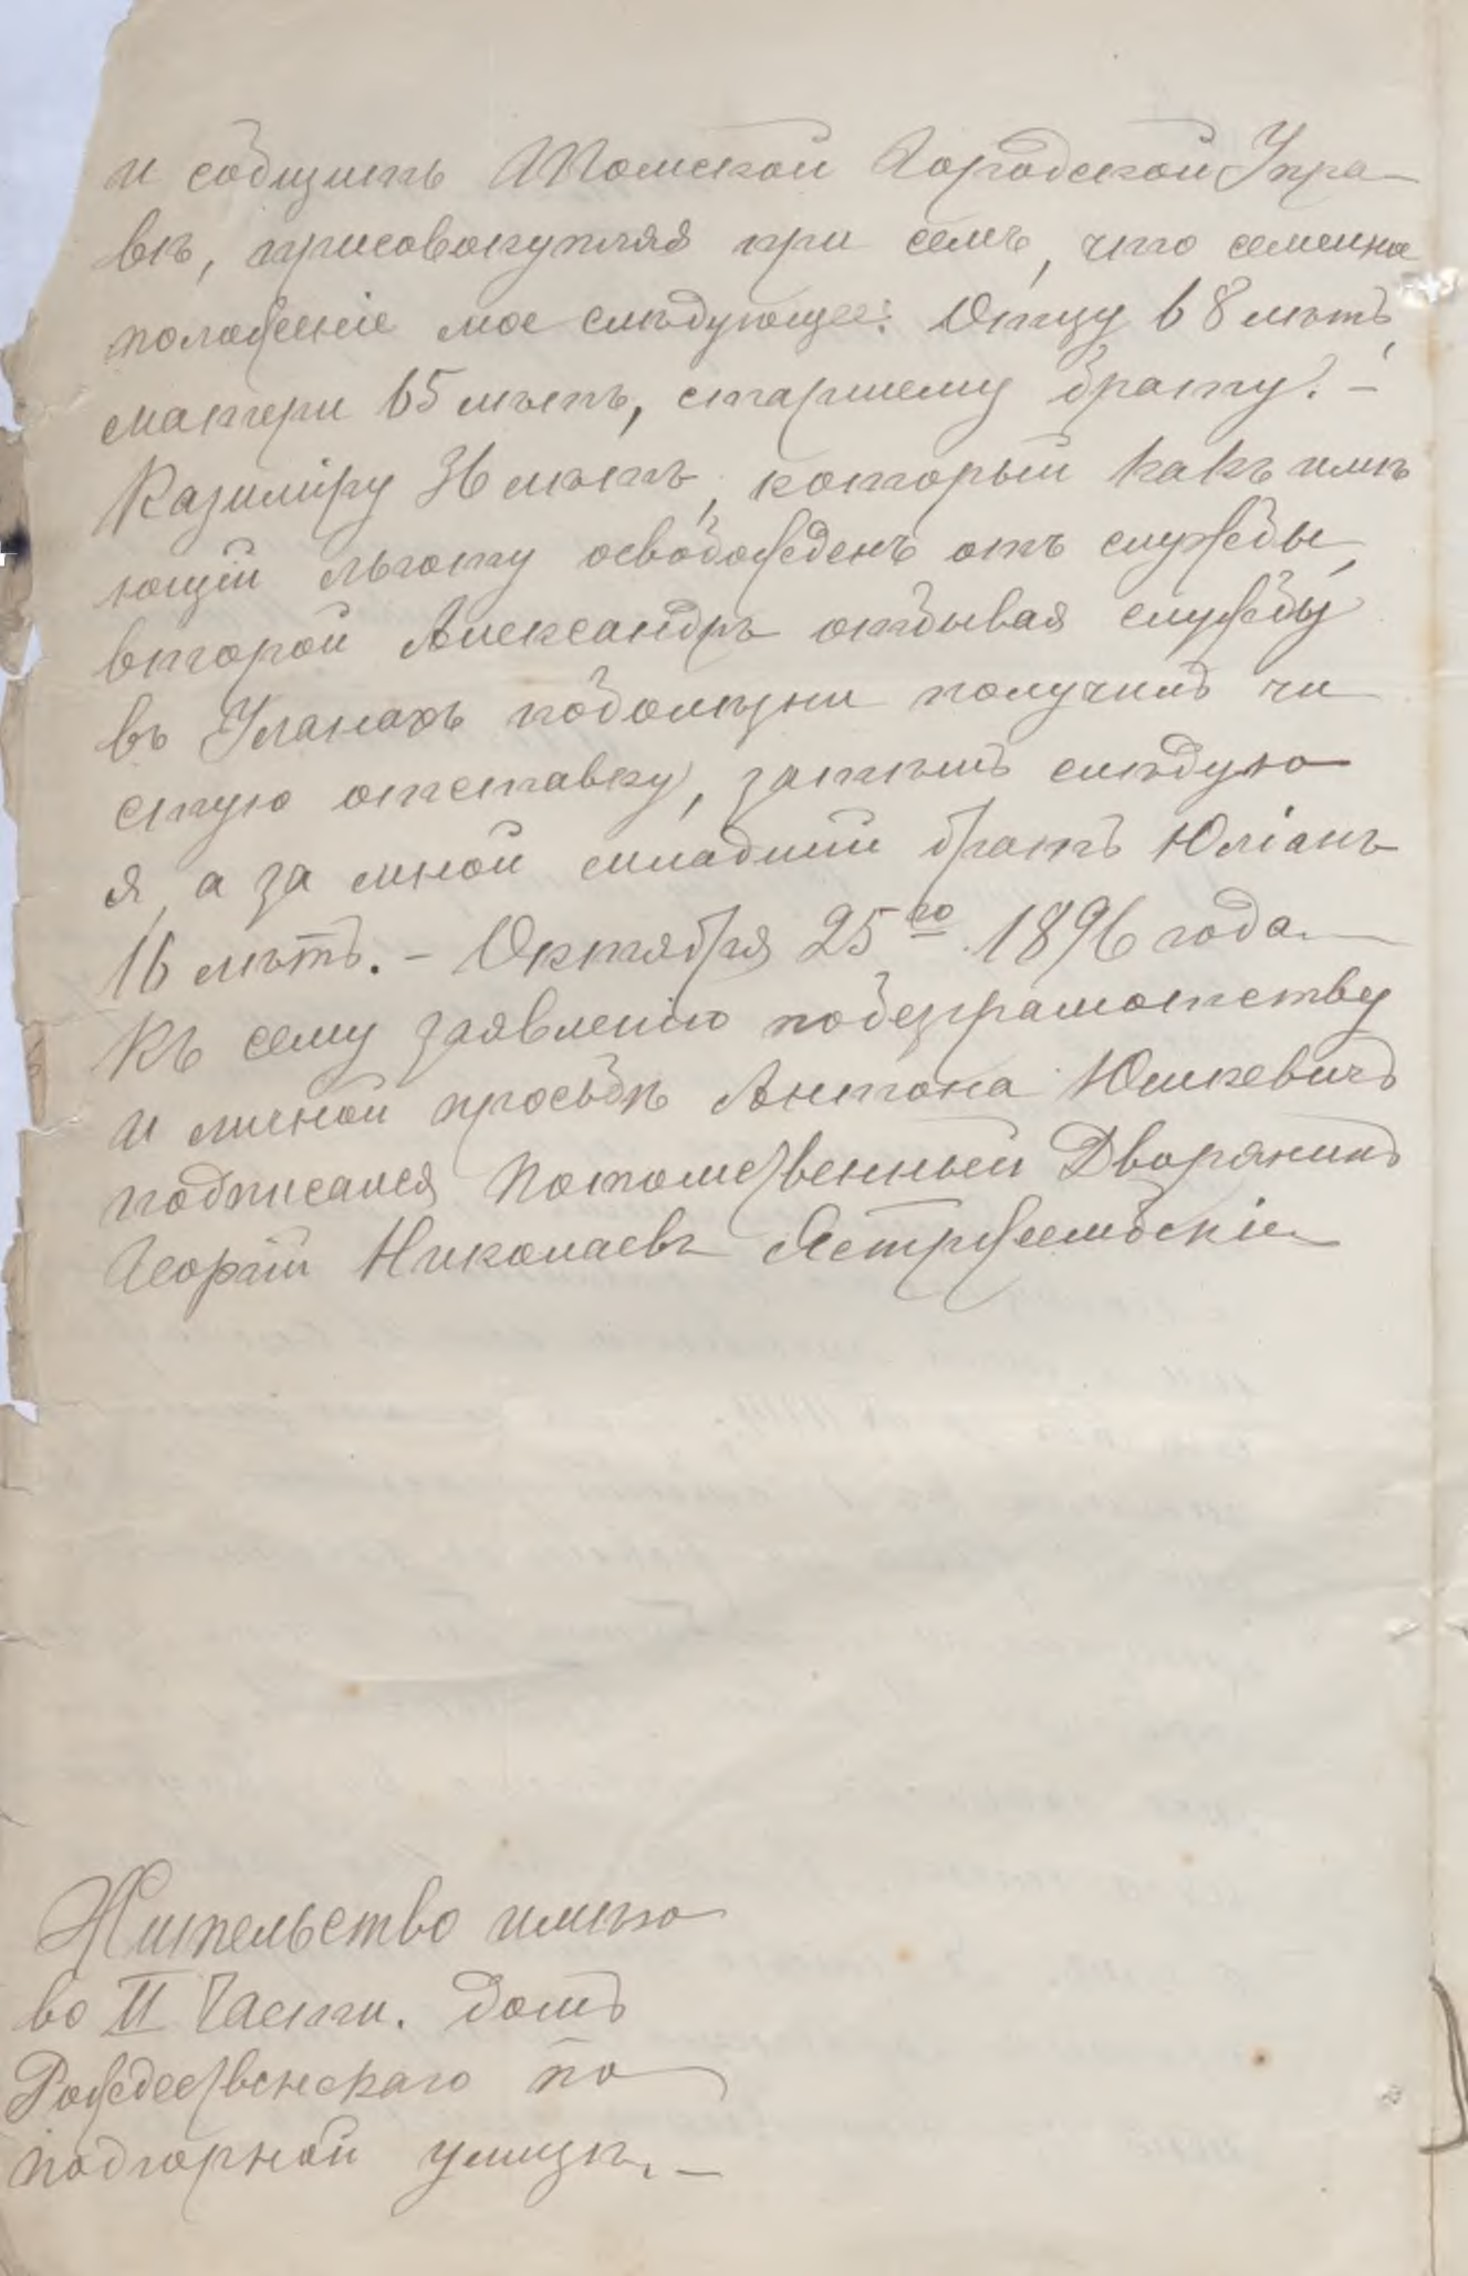 и сообщить Томской Городской Упра-
вѣ, присовокупляя при семъ, что семейное
положеніе мое слѣдующее: Отцу 68 лѣтъ,
матери 65 лѣтъ, старшему брату. -
Казиміру 36 лѣтъ, который какъ имѣ
ющій льготу освобожденъ отъ службы,
второй Александръ отбывая службу
въ Уланахъ поболѣзни получилъ чи
стую отставку, затѣмъ слѣдую
я, а за мной младшій братъ Юліанъ
16 лѣтъ. - Октября 25го 1896 года. -
Къ сему заявленію побезграмотству
и личной просьбѣ Антона Юшкевичъ
подписался Потомственный Дворянинъ
Георгій Николаевъ
Жительство имѣю
во II Части. домъ
Рождественскаго по
подгорной улицѣ. -